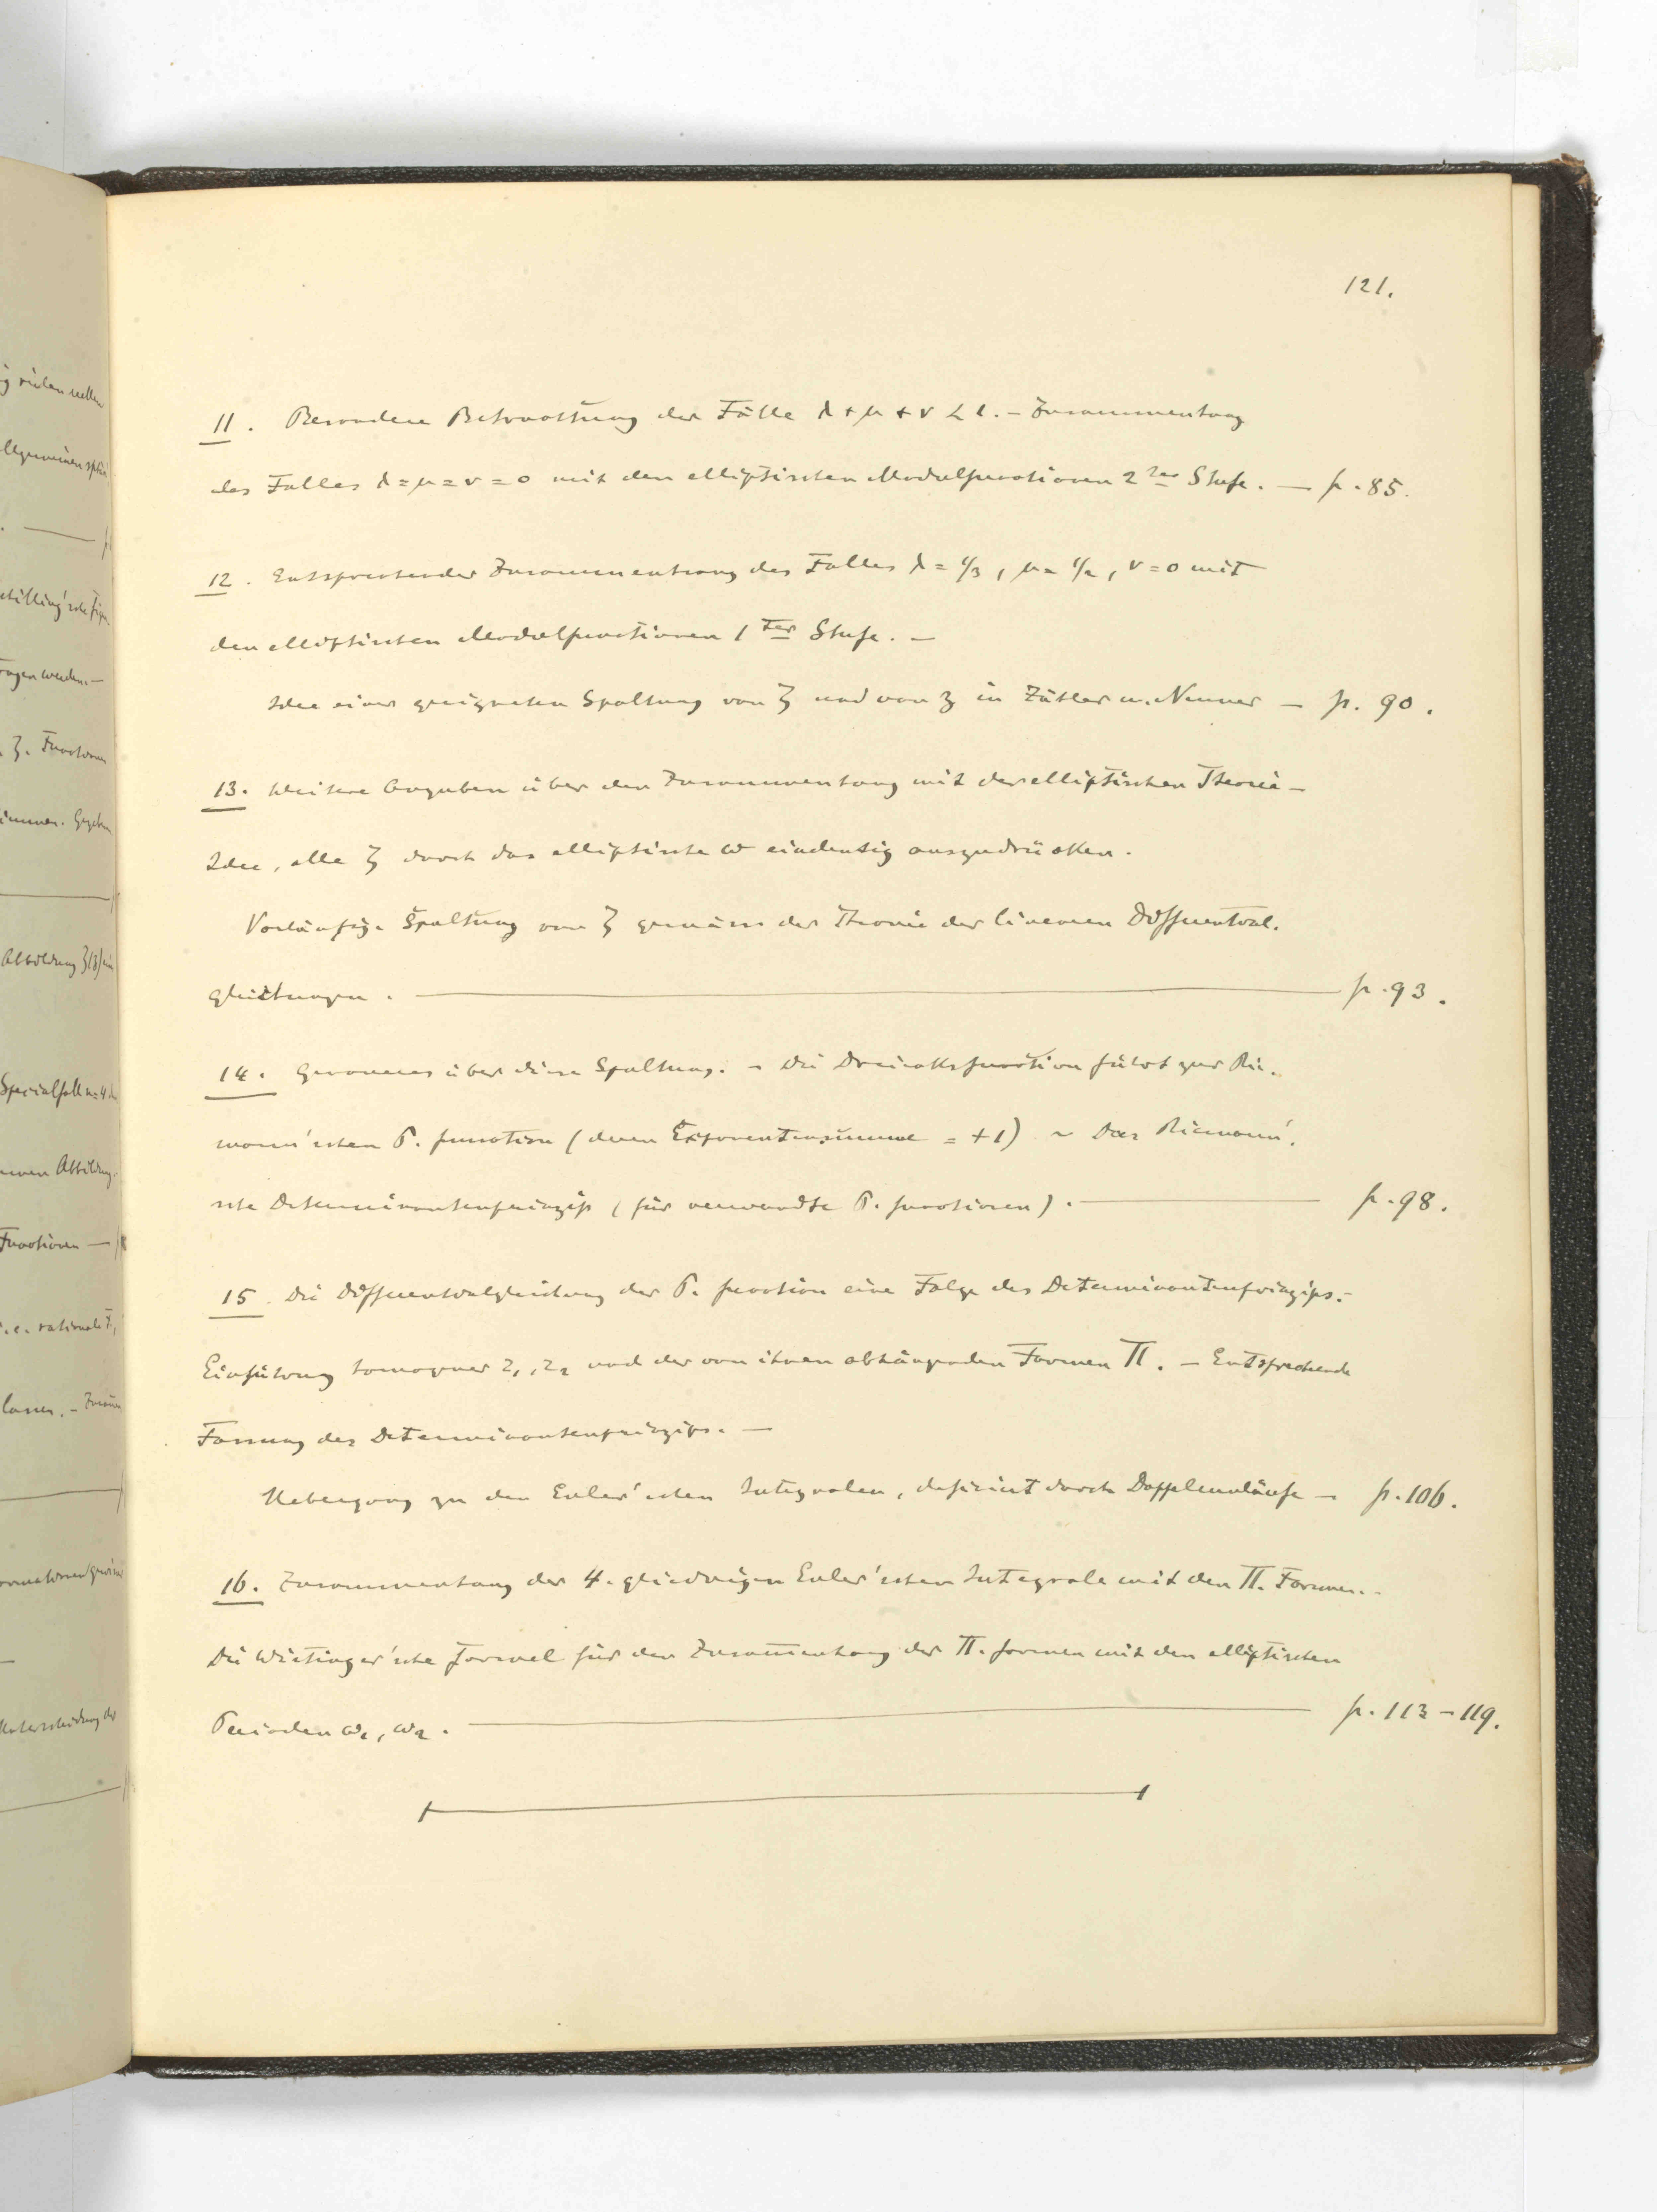 121.
11. Besondere Betrachtung der Fälle λ+μ+ν < 1. – Zusammenhang
des Falles λ=μ=ν=0 mit den elliptischen Modulfunctionen 2ter Stufe. — p. 85.
12. Entsprechender Zusammenhang des Falles λ = 1/3, μ = 1/2, ν=0 mit
den elliptischen Modulfunctionen 1ter Stufe. –
Idee einer geeigneten Spaltung von ζ und von z in Zähler u. Nenner – p. 90.
13. Weitere Angaben über den Zusammenhang mit der elliptischen Theorie –
Idee, alle ζ durch das elliptische ω eindeutig auszudrücken.
Vorläufige Spaltung von ζ gemäss der Theorie der linearen Differential-
gleichungen. — p. 93.
14. Genaueres über diese Spaltung. – Die Dreiecksfunction führt zur Rie-
mann'schen P. function (deren Exponentensumme = +1) – Das Riemann'-
sche Determinantenprinzip (für verwandte P. functionen). — p. 98.
15. Die Differentialgleichung der P. function eine Folge des Determinantenprinzips. –
Einführung homogener z1, z2 und der von ihnen abhängenden Formen Π. – Entsprechende
Fassung des Determinantenprinzips. –
Uebergang zu den Euler'schen Integralen, definirt durch Doppelumläufe – p. 106.
16. Zusammenhang der 4-gliedrigen Euler'schen Integrale mit den Π. Formen. –
Die Wirtinger'sche Formel für den Zusammenhang der Π. formen mit den elliptischen
Perioden ω1, ω2. — p. 113 – 119.